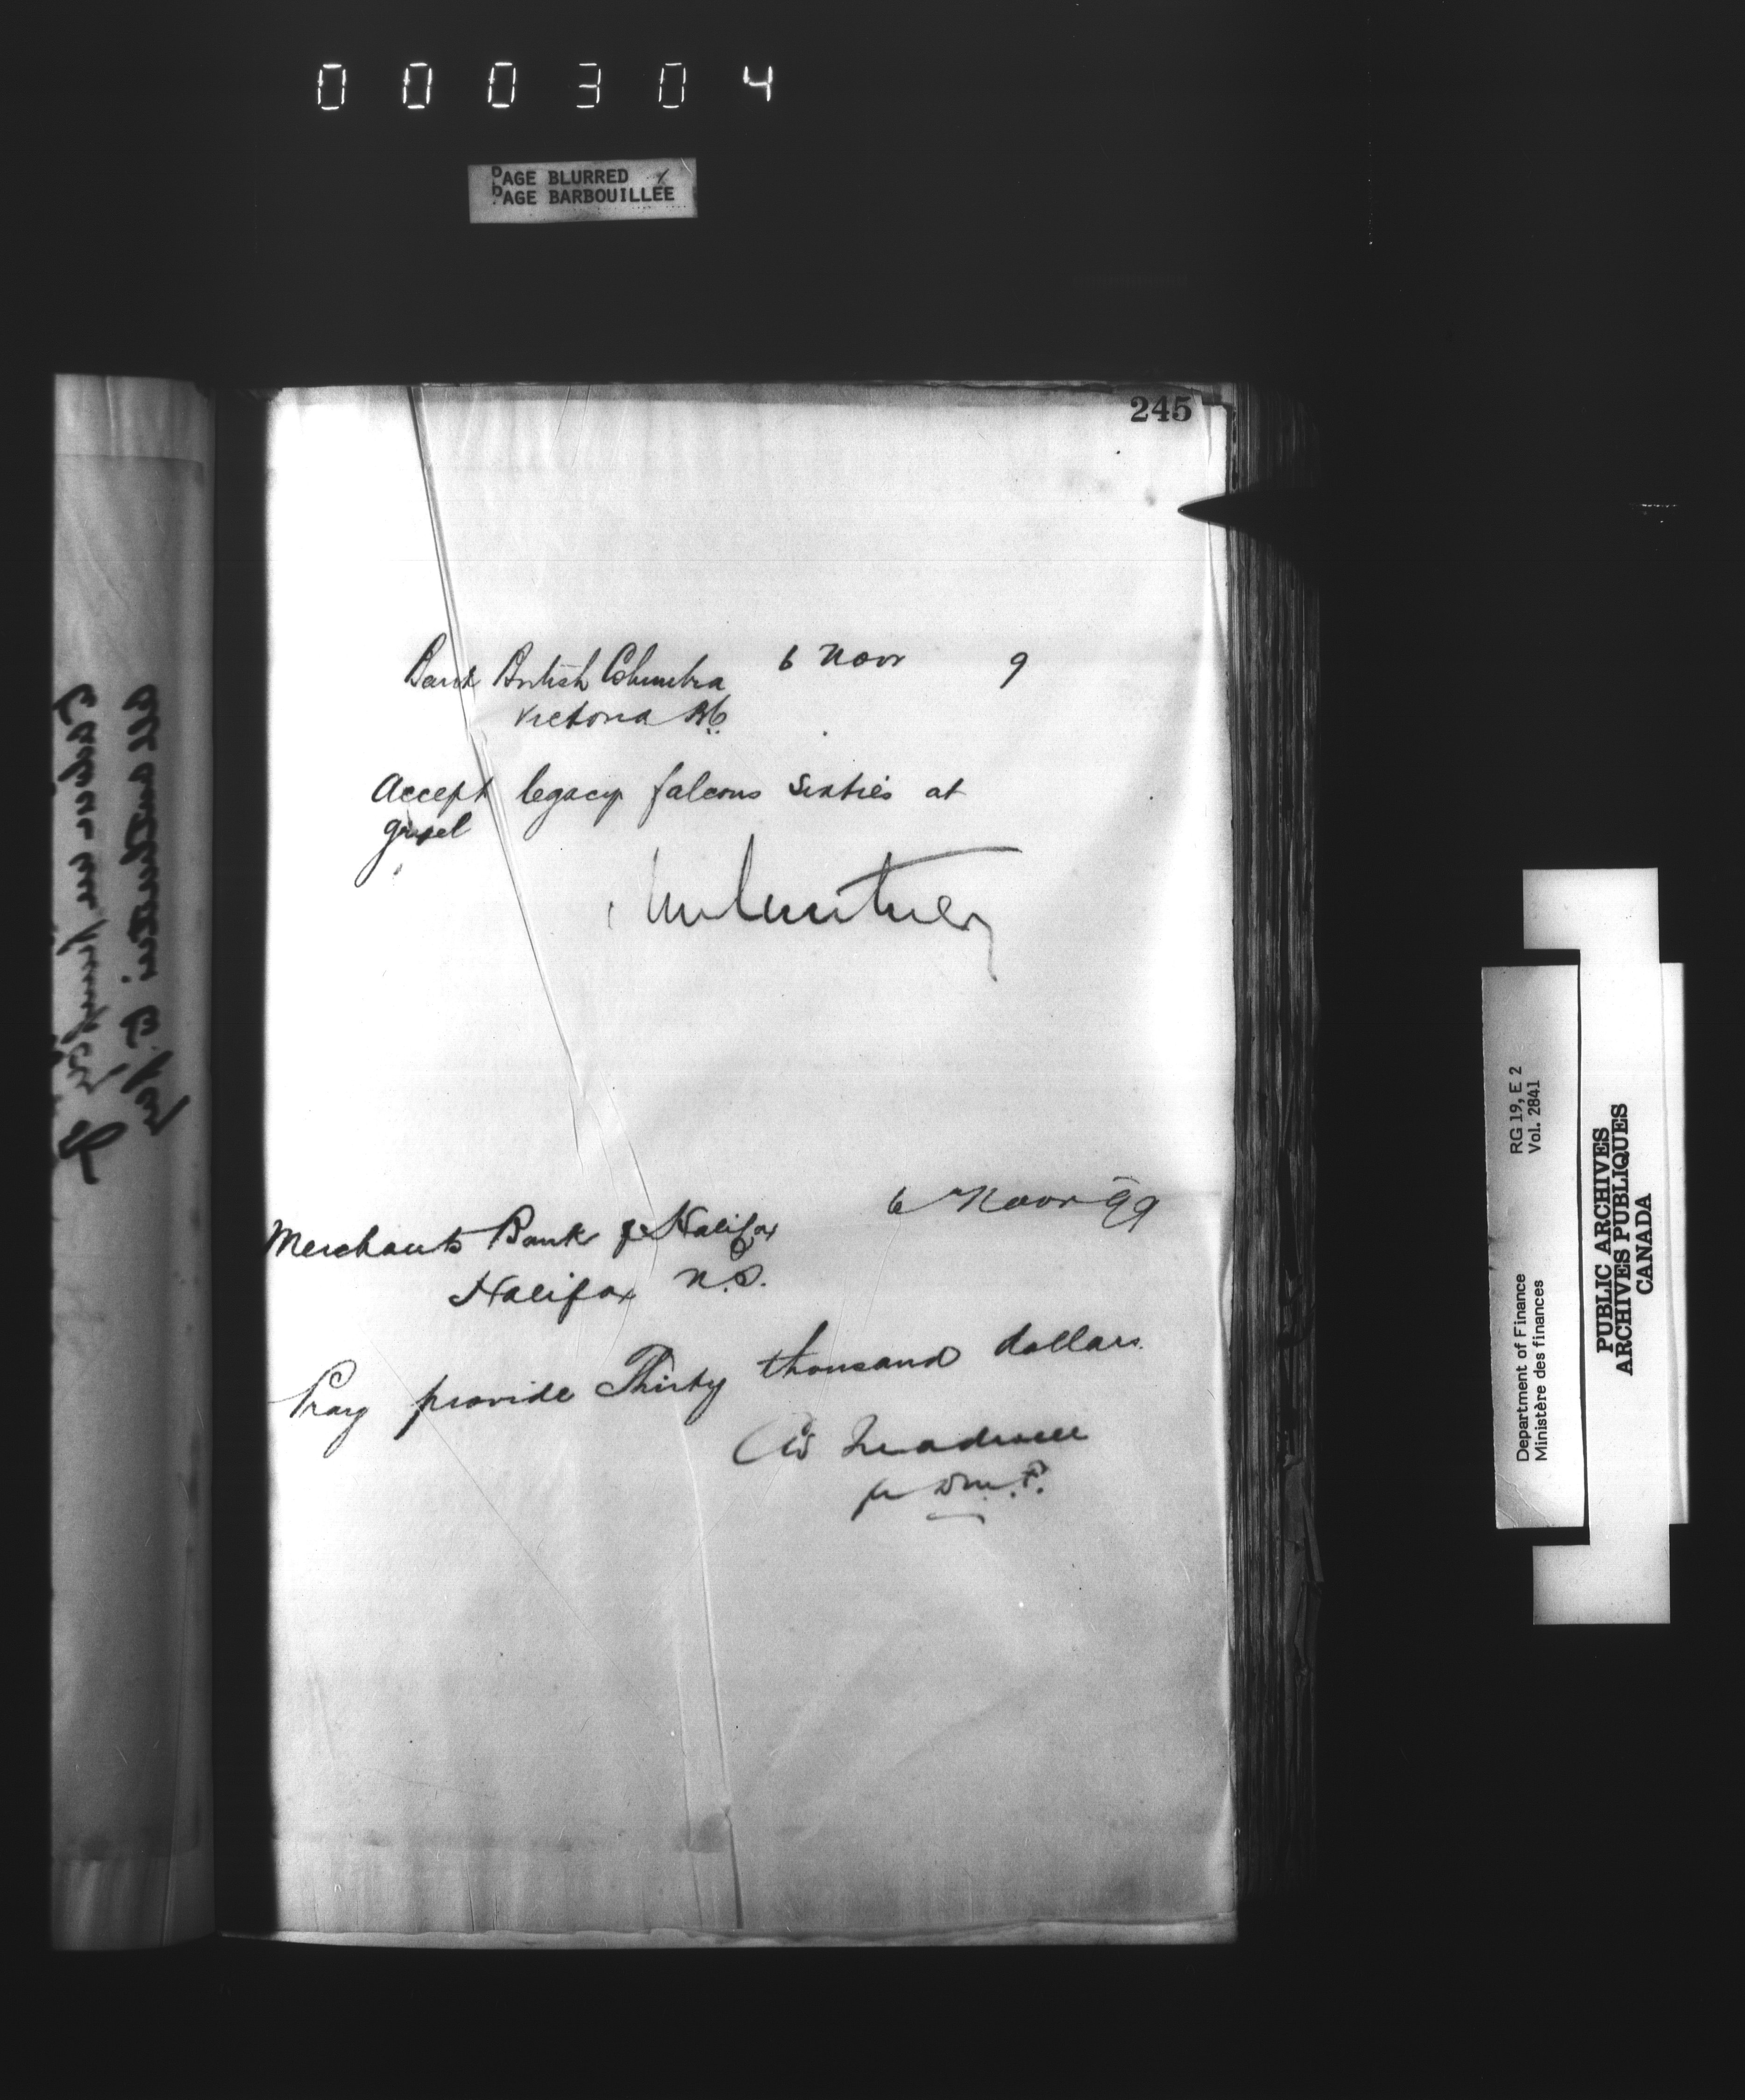 000304
PAGE BLURRED
PAGE BARBOUILLÉE
245
Bank British Columbia 6 Novr 9
Victoria BC
Accept legacy falcons sixties at
gospel
Merchants Bank of Halifax 6 Novr 99
Halifax N.S.
Pray provide Thirty thousand dollars.
for D.M.F.
RG 19, E 2
Vol. 2841
Department of Finance
Ministère des finances
PUBLIC ARCHIVES
ARCHIVES PUBLIQUES
CANADA